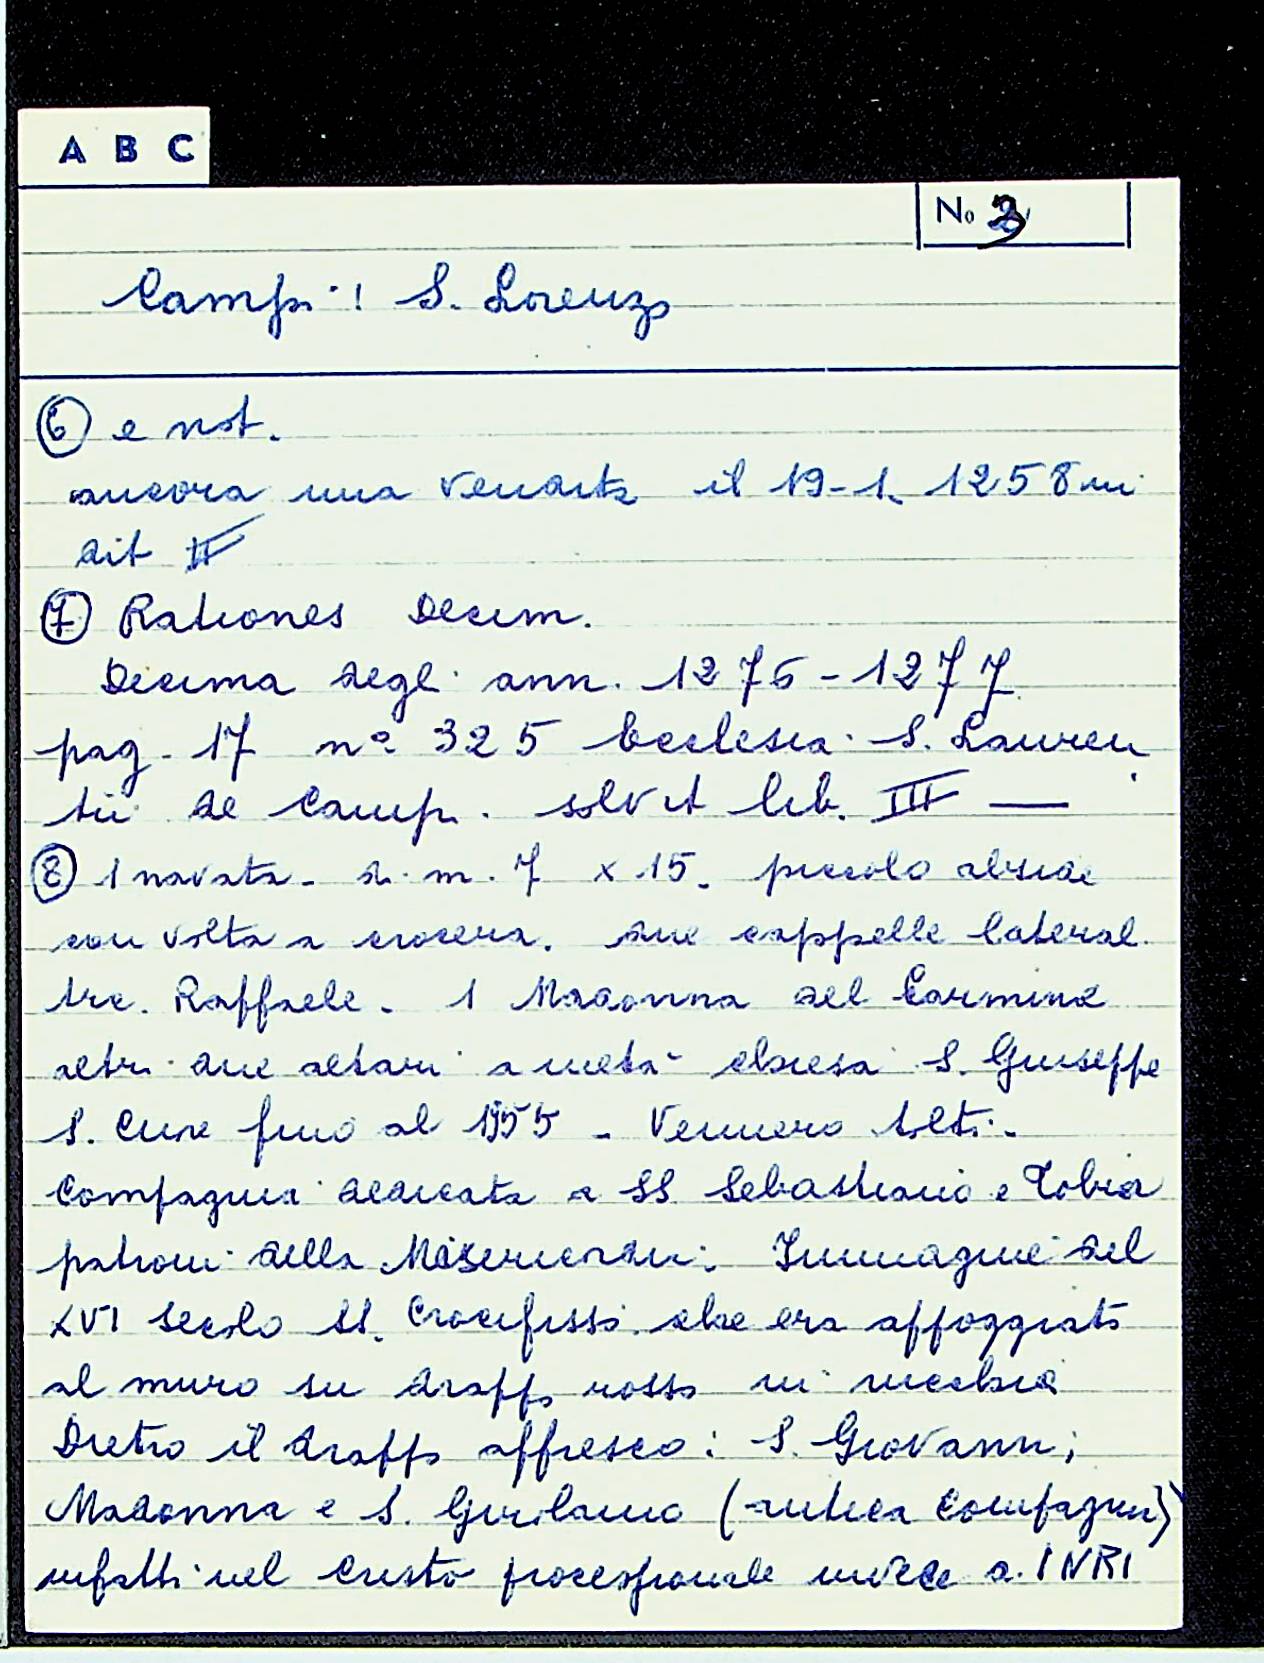 A B C
No 3
Campi: S. Lorenzo
⑥ e not.
ancora una venduta il 19-1. 1258 in
dit II
⑦ Rationes Decim.
Decima degli ann. 1276-1277
pag. 17 n° 325 Ecclesia S. Lauren
tii de Camp. solvit lib. III —
⑧ 1 navata - di m. 7 x 15. piccolo abside
con volta a crocera. due cappelle laterali
Raffaele. 1 Madonna del Carmine
altri due altari a metà chiesa S. Giuseppe
S. fino al 1955 - Vennero tolti.
Compagnia dedicata a SS Sebastiano e Tobia
patroni della Misericordia. Immagine del
XVI secolo SS. Crocifisso che era appoggiato
al muro su drappo rosso in nicchia
Dietro il drappo affresco: S. Giovanni;
Madonna e S. Girolamo (antica Compagnia)
infatti nel Cristo processionale invece a. INRI